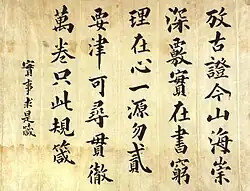 放古證今山海崇
深覈實在書窮
理在心一源勿貳
要津可尋貫徹
萬卷只此規箴
實事求是箴